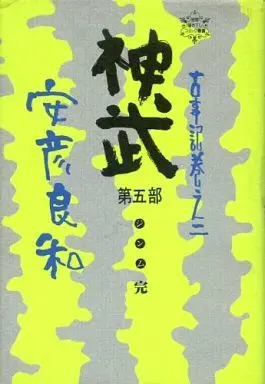 古事記巻之二
神武
第五部
ジンム
完
安彦良和